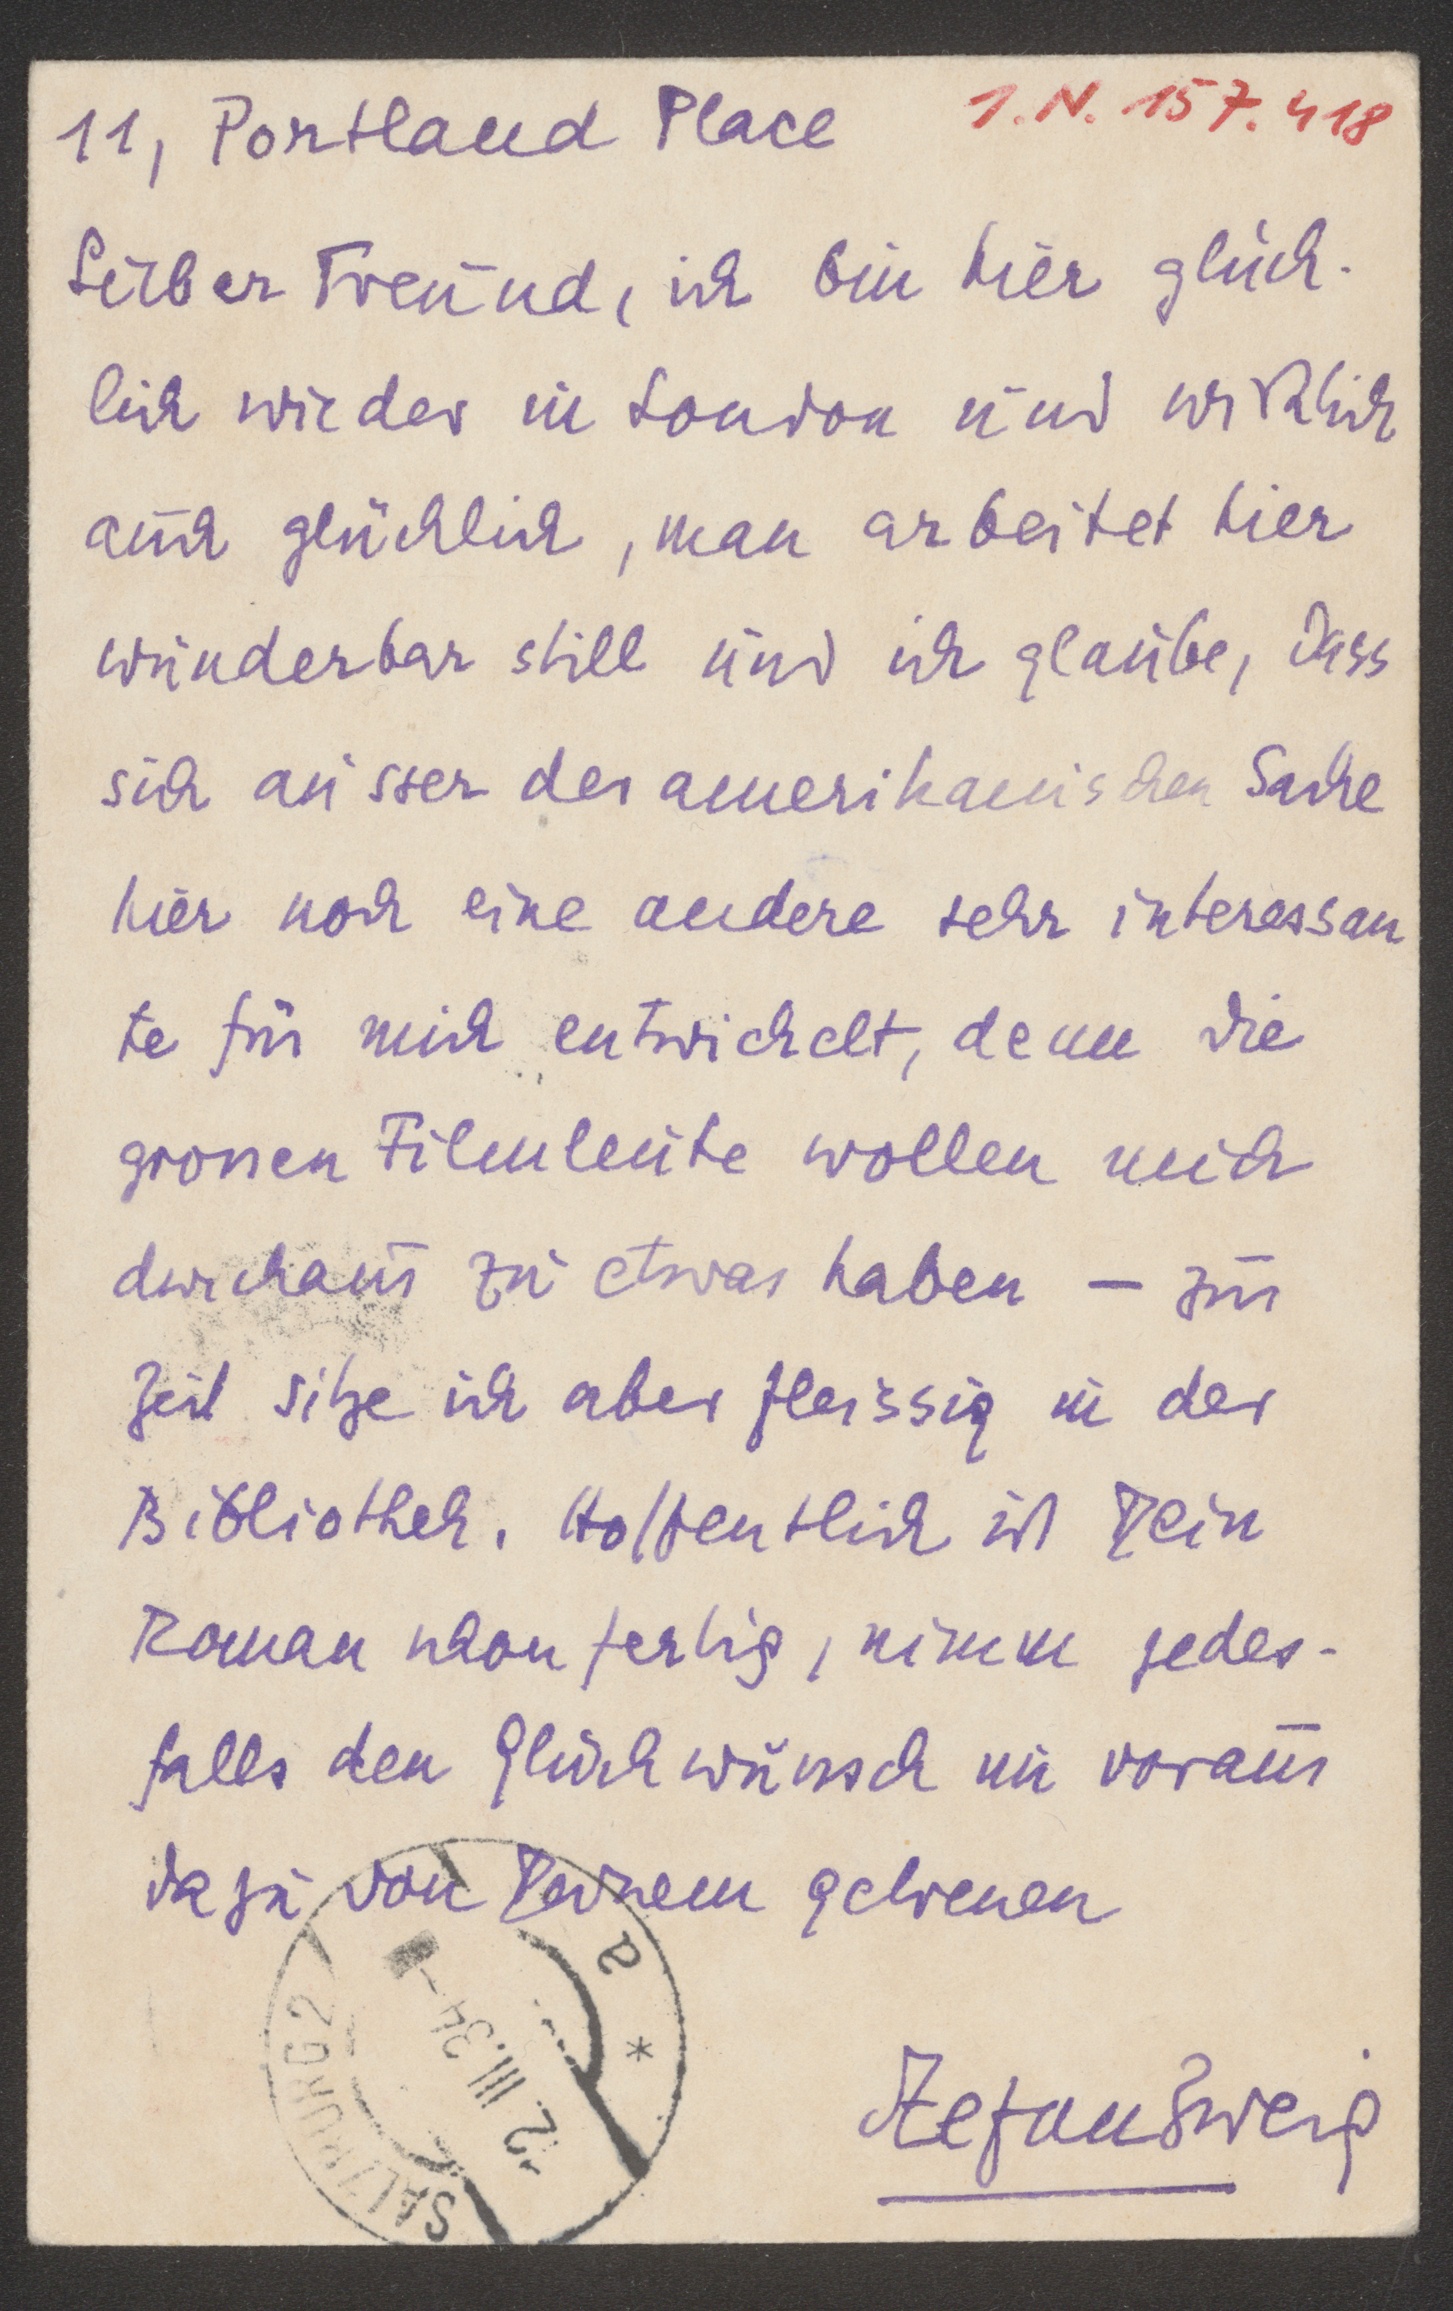 11, Portland Place
1.N. 157.418
Lieber Freund, ich bin hier glück-
lich wieder in London und wirklich
auch glücklich, man arbeitet hier
wunderbar still und ich glaube, dass
sich ausser der amerikanischen Sache
hier noch eine andere sehr interessan
te für mich entwickelt, denn die
grossen Filmleute wollen mich
durchaus zu etwas haben – zur
Zeit sitze ich aber fleissig in der
Bibliothek. Hoffentlich ist Dein
Roman schon fertig, nimm jedes-
falls den Glückwunsch im voraus
dazu von Deinem getreuen
Stefan Zweig
SALZBURG 2
2.III.34
a
*